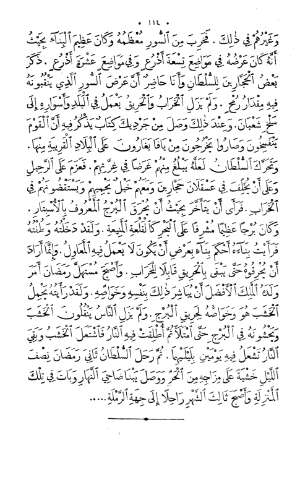 • ١١٤ •
وَغَيْرُهُمْ فِي ذٰلِكَ. فَخَرِبَ مِنَ السُّورِ مُعْظَمُهُ وَكَانَ عَظِيمَ الْبِنَاءِ بِحَيْثُ
أَنَّهُ كَانَ عَرْضُهُ فِي مَوَاضِعَ تِسْعَةَ أَذْرُعٍ وَفِي مَوَاضِعَ عَشَرَةَ أَذْرُعٍ. ذَكَرَ
بَعْضُ الْحَجَّارِينَ لِلسُّلْطَانِ وَأَنَا حَاضِرٌ أَنَّ عَرْضَ السُّورِ الَّذِي يَنْقُبُونَهُ
فِيهِ مِقْدَارُ رُمْحٍ. وَلَمْ يَزَلِ الْخَرَابُ وَالْحَرِيقُ يَعْمَلُ فِي الْبَلَدِ وَأَسْوَارِهِ إِلَى
سَلْخِ شَعْبَانَ. وَعِنْدَ ذٰلِكَ وَصَلَ مِنْ جُرْدِيكَ كِتَابٌ يَذْكُرُ فِيهِ أَنَّ الْقَوْمَ
يَتَفَسَّحُونَ وَصَارُوا يَخْرُجُونَ مِنْ يَافَا يُغَارُونَ عَلَى الْبِلَادِ الْقَرِيبَةِ مِنْهَا.
وَتَحَرَّكَ السُّلْطَانُ لَعَلَّهُ يَبْلُغُ مِنْهُمْ غَرَضًا فِي غِرَّتِهِمْ. فَعَزَمَ عَلَى الرَّحِيلِ
وَعَلَى أَنْ يُخَلِّفَ فِي عَسْقَلَانَ حَجَّارِينَ وَمَعَهُمْ خَيْلٌ تَحْمِيهِمْ وَيَسْتَنْهِضُونَهُمْ فِي
الْخَرَابِ. فَرَأَى أَنْ يَتَأَخَّرَ بِحَيْثُ أَنْ يُحْرَقَ الْبُرْجُ الْمَعْرُوفُ بِالْإِسْبِتَارِ.
وَكَانَ بُرْجًا عَظِيمًا مُشْرِفًا عَلَى الْبَحْرِ كَالْقَلْعَةِ الْمَنِيعَةِ. وَلَقَدْ دَخَلْتُهُ وَطُفْتُهُ
فَرَأَيْتُ بِنَاءَهُ أَحْكَمَ بِنَاءٍ بِعَرْضٍ أَنْ يَكُونَ لَا يَعْمَلُ فِيهِ الْمَعَاوِلُ. وَإِنَّمَا أَرَادَ
أَنْ يُحْرِقُوهُ حَتَّى يَبْقَى بِالْحَرِيقِ قَابِلًا لِلْخَرَابِ. وَأَصْبَحَ مُسْتَهَلَّ رَمَضَانَ أَمَرَ
وَلَدَهُ الْمَلِكَ الْأَفْضَلَ أَنْ يُبَاشِرَ ذٰلِكَ بِنَفْسِهِ وَخَوَاصِّهِ. وَلَقَدْ رَأَيْتُهُ يَحْمِلُ
الْخَشَبَ هُوَ وَخَوَاصُّهُ لِحَرِيقِ الْبُرْجِ. وَلَمْ يَزَلِ النَّاسُ يَنْقُلُونَ الْخَشَبَ
وَيَحْشُونَهُ فِي الْبُرْجِ حَتَّى امْتَلَأَ ثُمَّ أُطْلِقَتْ فِيهِ النَّارُ فَاشْتَعَلَ الْخَشَبُ وَبَقِيَ
النَّارُ تَشْعَلُ فِيهِ يَوْمَيْنِ بِلَيْلَتَيْهِمَا. ثُمَّ رَحَلَ السُّلْطَانُ ثَانِيَ رَمَضَانَ نِصْفَ
اللَّيْلِ خَشْيَةً عَلَى مِزَاجِهِ مِنَ الْحَرِّ وَوَصَلَ يَبْنَا ضَاحِيَ النَّهَارِ وَبَاتَ فِي تِلْكَ
الْمَنْزِلَةِ وَأَصْبَحَ ثَالِثَ الشَّهْرِ رَاحِلًا إِلَى جِهَةِ الرَّمْلَةِ.....